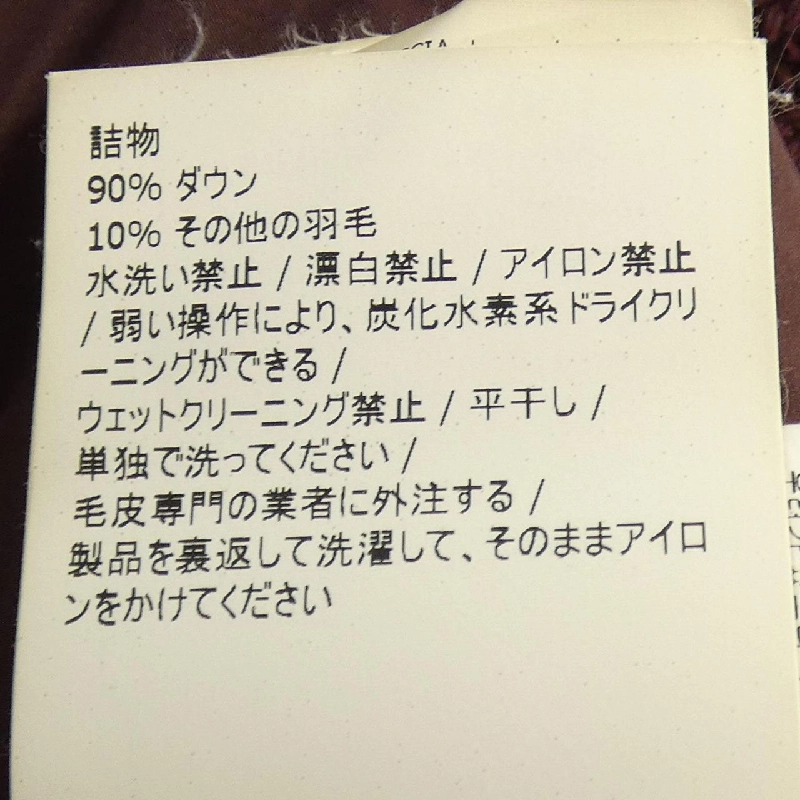 詰物
90% ダウン
10% その他の羽毛
水洗い禁止 / 漂白禁止 / アイロン禁止
/ 弱い操作により、炭化水素系ドライクリ
ーニングができる /
ウェットクリーニング禁止 / 平干し /
単独で洗ってください /
毛皮専門の業者に外注する /
製品を裏返して洗濯して、そのままアイロ
ンをかけてください